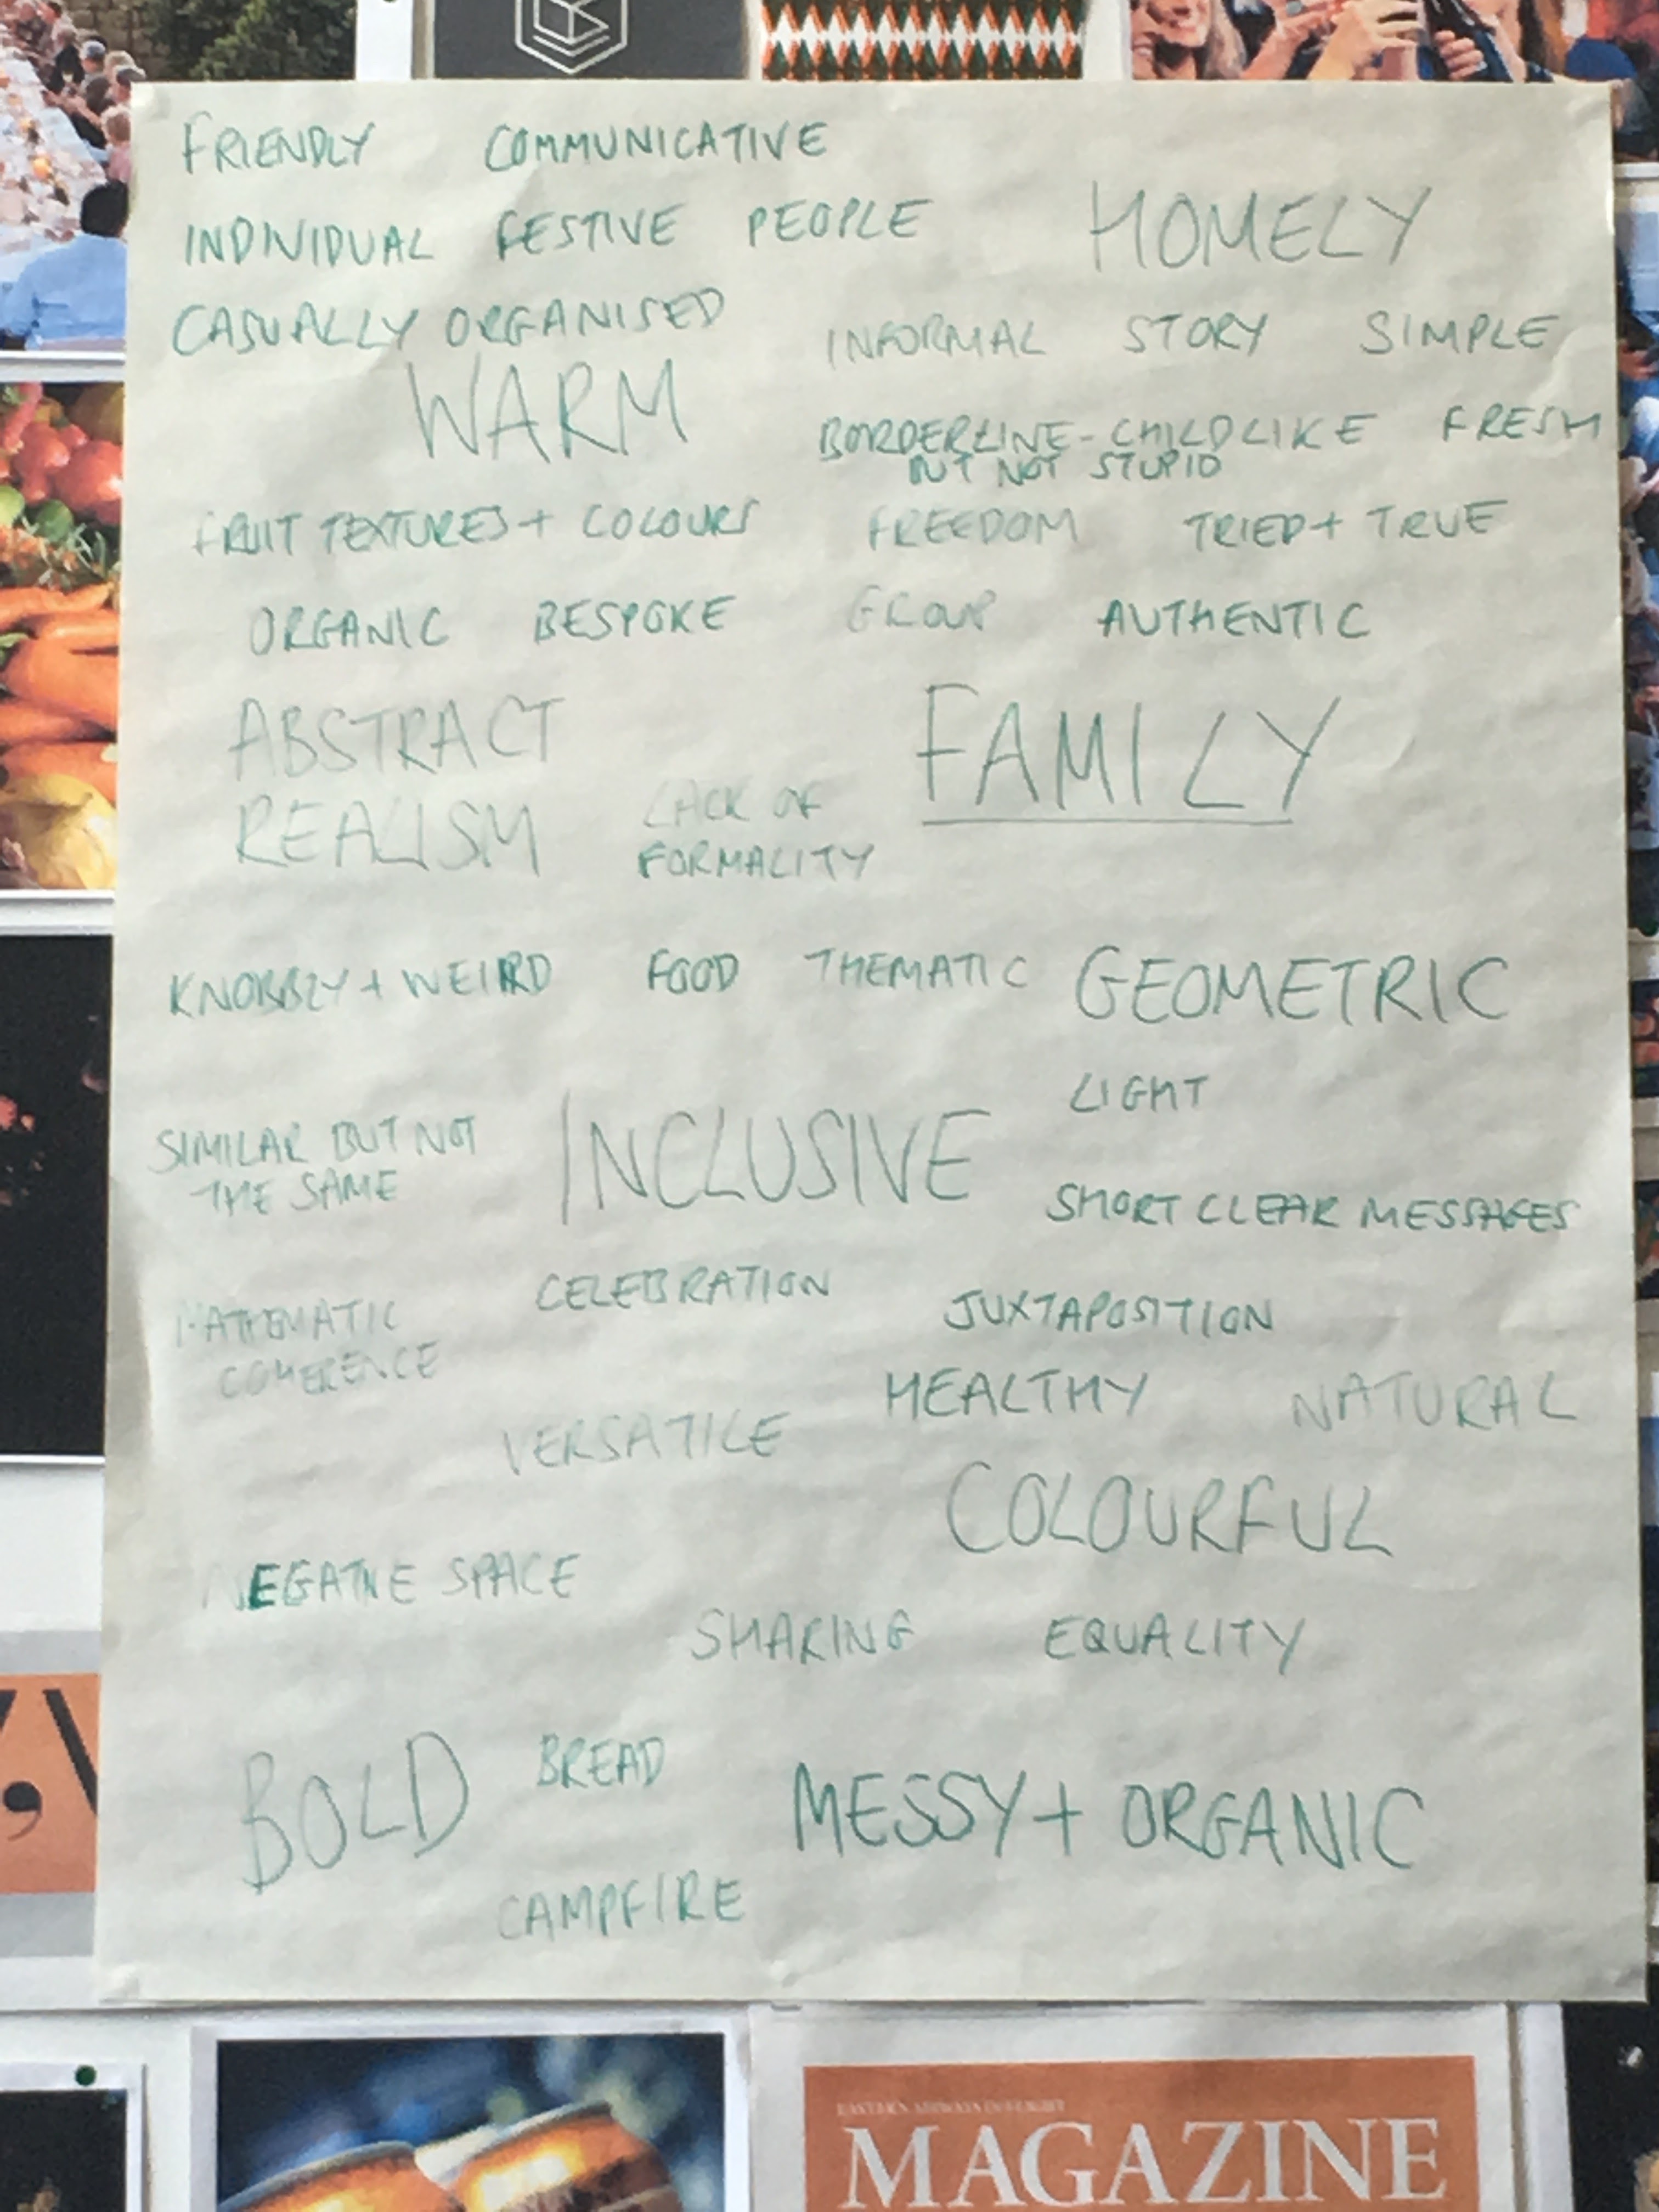 FRIENDLY COMMUNICATIVE
INDIVIDUAL FESTIVE PEOPLE HOMELY
CASUALLY ORGANISED
INFORMAL STORY SIMPLE
WARM
BORDERLINE-CHILDLIKE FRESH
BUT NOT STUPID
FRUIT TEXTURES + COLOURS FREEDOM TRIED + TRUE
ORGANIC BESPOKE GROUP AUTHENTIC
ABSTRACT
REALISM
LACK OF
FORMALITY
FAMILY
KNOBBLY + WEIRD FOOD THEMATIC GEOMETRIC
LIGHT
SIMILAR BUT NOT
THE SAME
INCLUSIVE
SHORT CLEAR MESSAGES
CELEBRATION
MATHEMATIC
COHERENCE
JUXTAPOSITION
HEALTHY NATURAL
VERSATILE
COLOURFUL
NEGATIVE SPACE
SHARING EQUALITY
BOLD
BREAD
MESSY + ORGANIC
CAMPFIRE
EASTERN AIRWAYS IN-FLIGHT
MAGAZINE